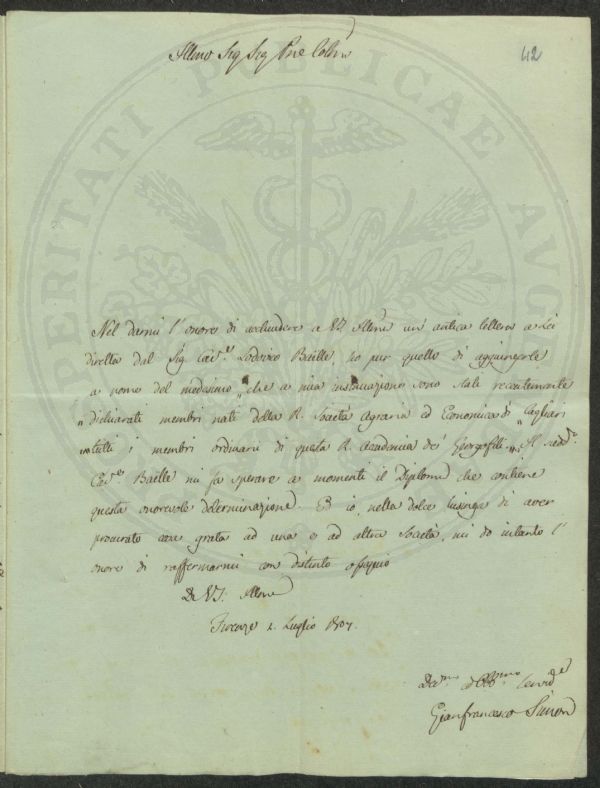 Illmo Sig Sig Pne Colmo
42
Nel darmi l' onore di acchiudere a VS. Illma un' antica lettera a lei
diretta dal Sig Cav.e Lodovico Baille, ho pur quello di aggiungerle
a nome del medesimo „ che a mia insinuazione sono stati recentemente
„ dichiarati membri nati della R. Società Agraria ed Economica di Cagliari
tutti i membri ordinari di questa R. Accademia de' Georgofili „. Il sudd.o
Cav.e Baille mi fa sperare a momenti il Diploma che contiene
questa onorevole determinazione. Ed io, nella dolce lusinga di aver
procurato cosa grata ad una e ad altra Società, mi do intanto l'
onore di raffermarmi con distinto ossequio
Di VS. Illma
Firenze 2. Luglio 1807.
Dev.mo ed Obb.mo Servid.e
Gianfrancesco Simon
PERITATI PUBLICAE AUGE